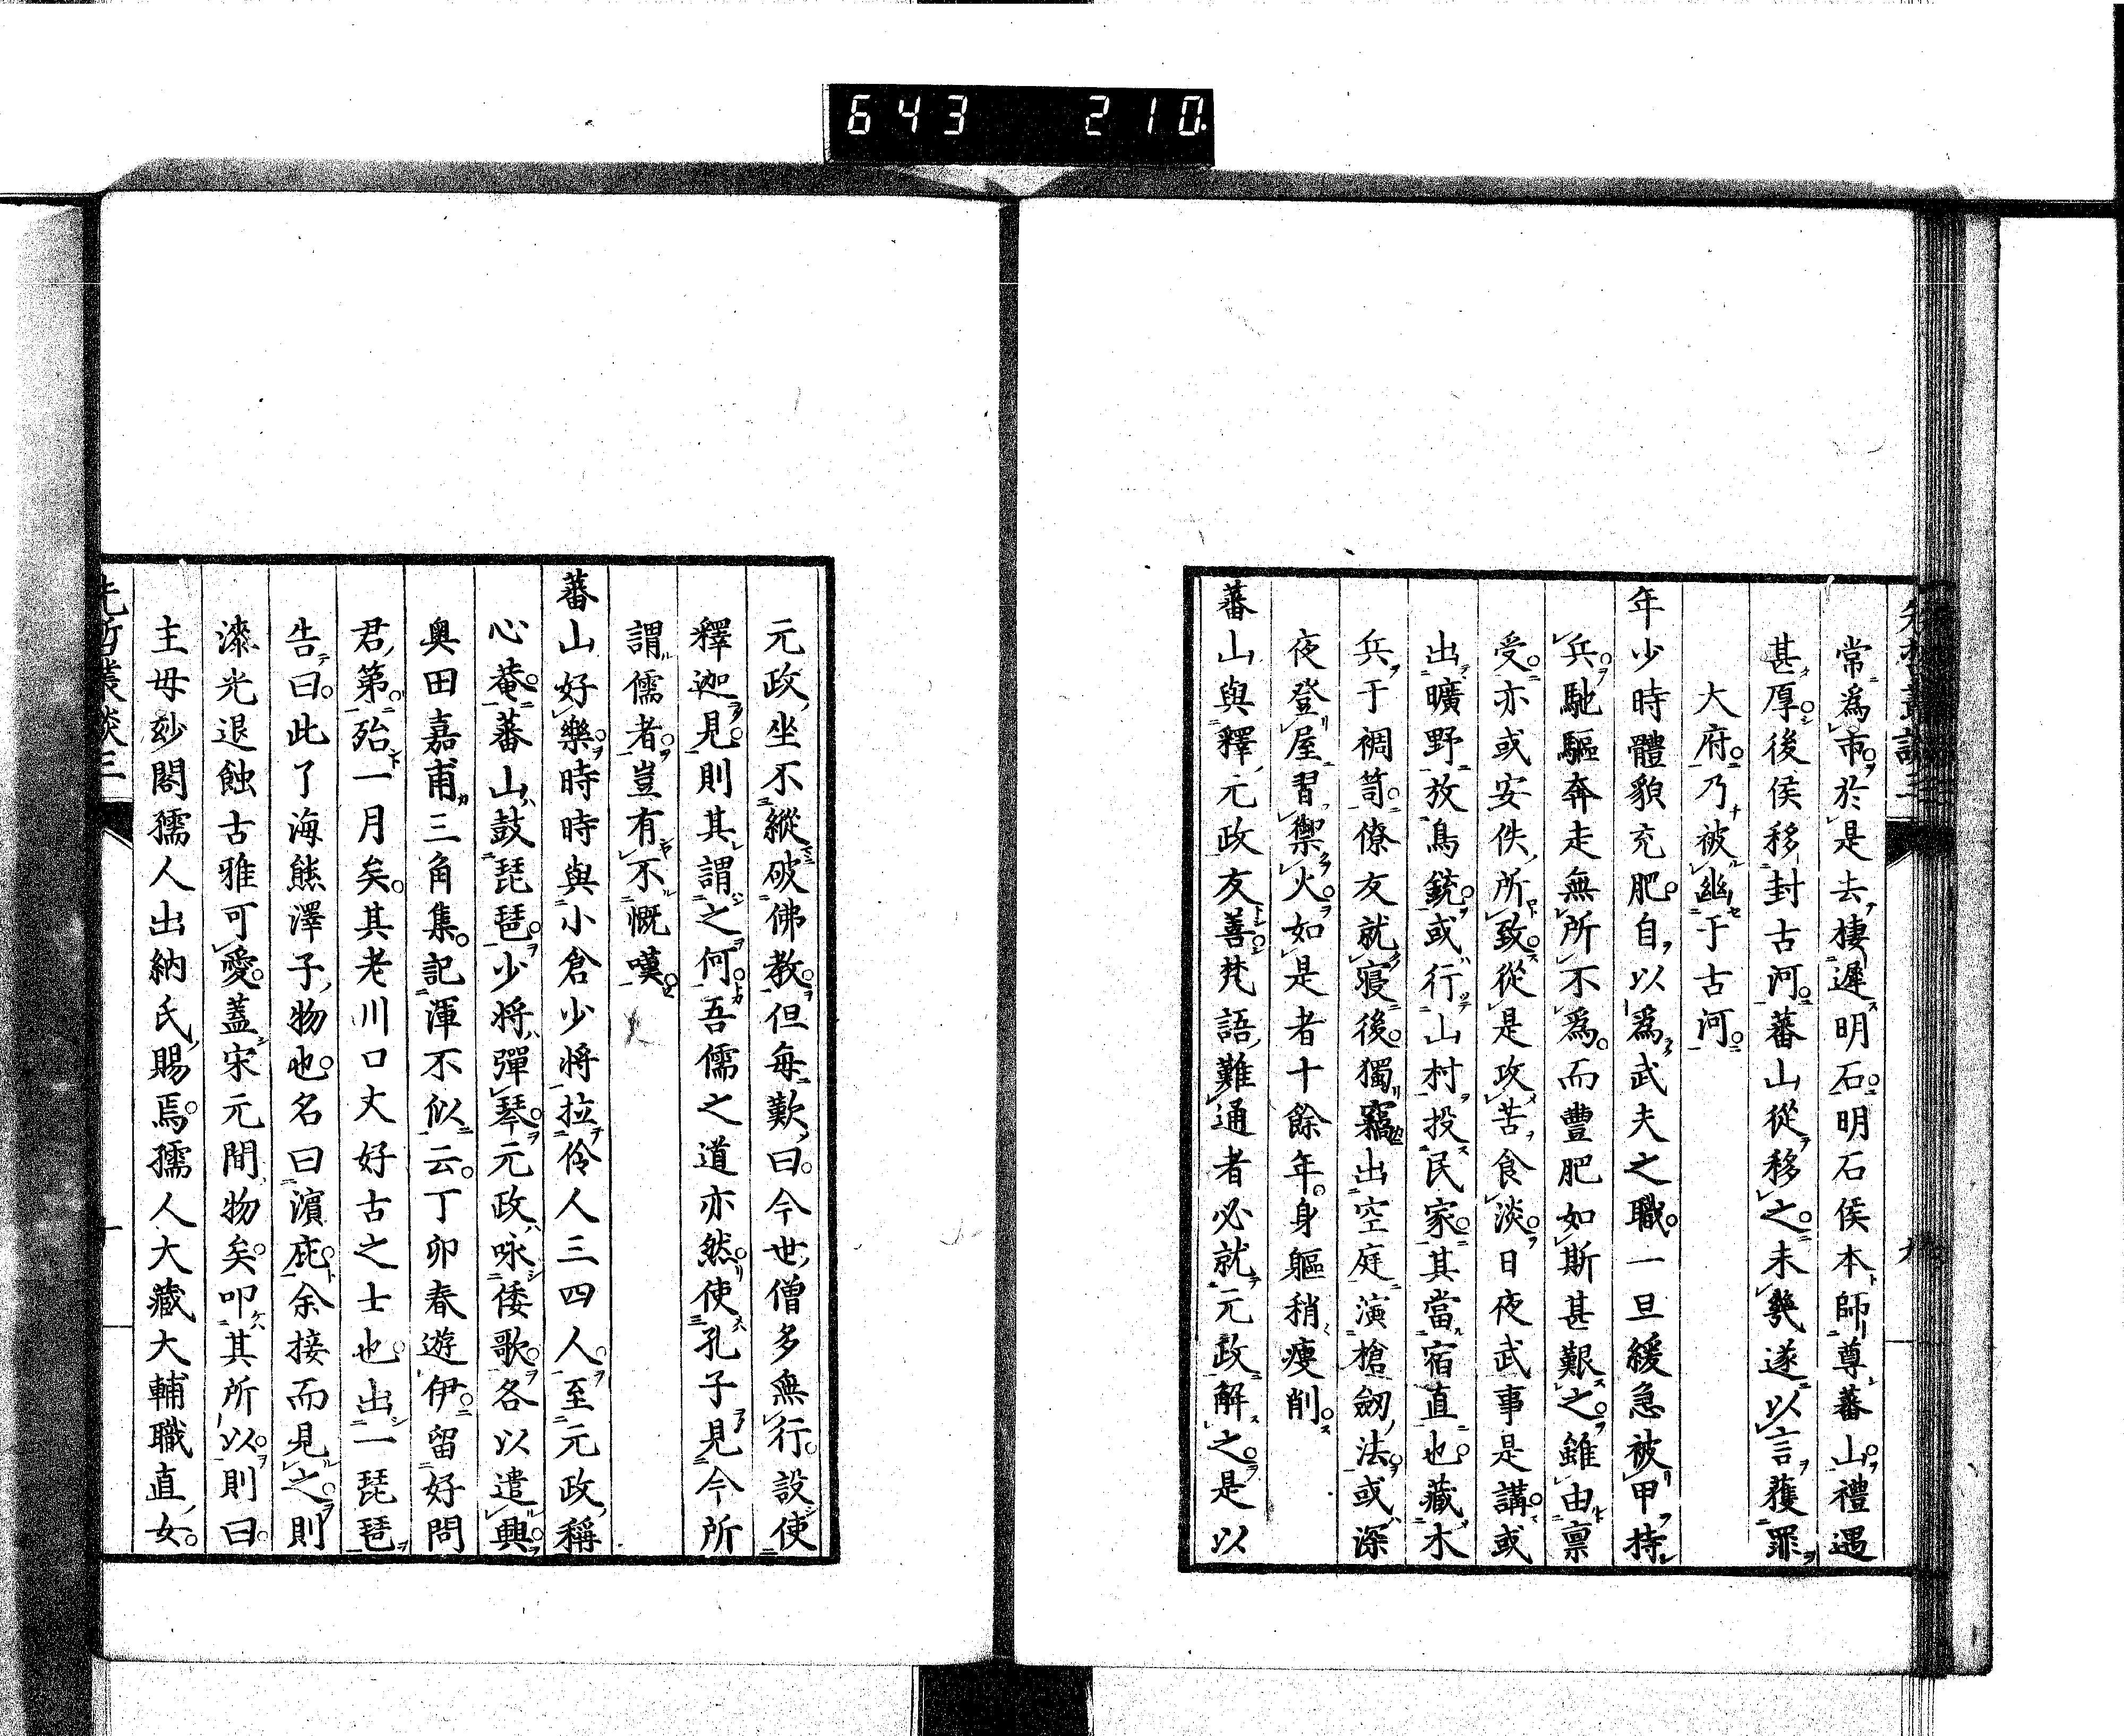 643 210
常爲市於是去棲遲明石明石侯本師尊蕃山禮遇
甚厚後侯移封古河蕃山從移之未幾遂以言獲罪
大府乃被幽于古河
年少時體貌充肥自以爲武夫之職一旦緩急被甲持
兵馳驅奔走無所不爲而豐肥如斯甚艱之雖由禀
受亦或安佚所致從是攻苦食淡日夜武事是講或
出曠野放鳥銃或行山村投民家其當宿直也藏木
兵于裯笥僚友就寢後獨竊出空庭演槍劒法或深
夜登屋習禦火如是者十餘年身軀稍瘦削
蕃山與釋元政友善梵語難通者必就元政解之是以
元政坐不縱破佛教但每歎曰今世僧多無行設使
釋迦見則其謂之何吾儒之道亦然使孔子見今所
謂儒者豈有不慨嘆
蕃山好樂時時與小倉少將拉伶人三四人至元政稱
心菴蕃山鼓琵琶少將彈琴元政咏倭歌各以遣興
奧田嘉甫三角集記渾不似云丁卯春遊伊留好問
君第殆一月矣其老川口丈好古之士也出一琵琶
告曰此了海熊澤子物也名曰濵庇余接而見之則
漆光退蝕古雅可愛蓋宋元間物矣叩其所以則曰
主母玅閣孺人出納氏賜焉孺人大藏大輔職直女
先哲叢談三